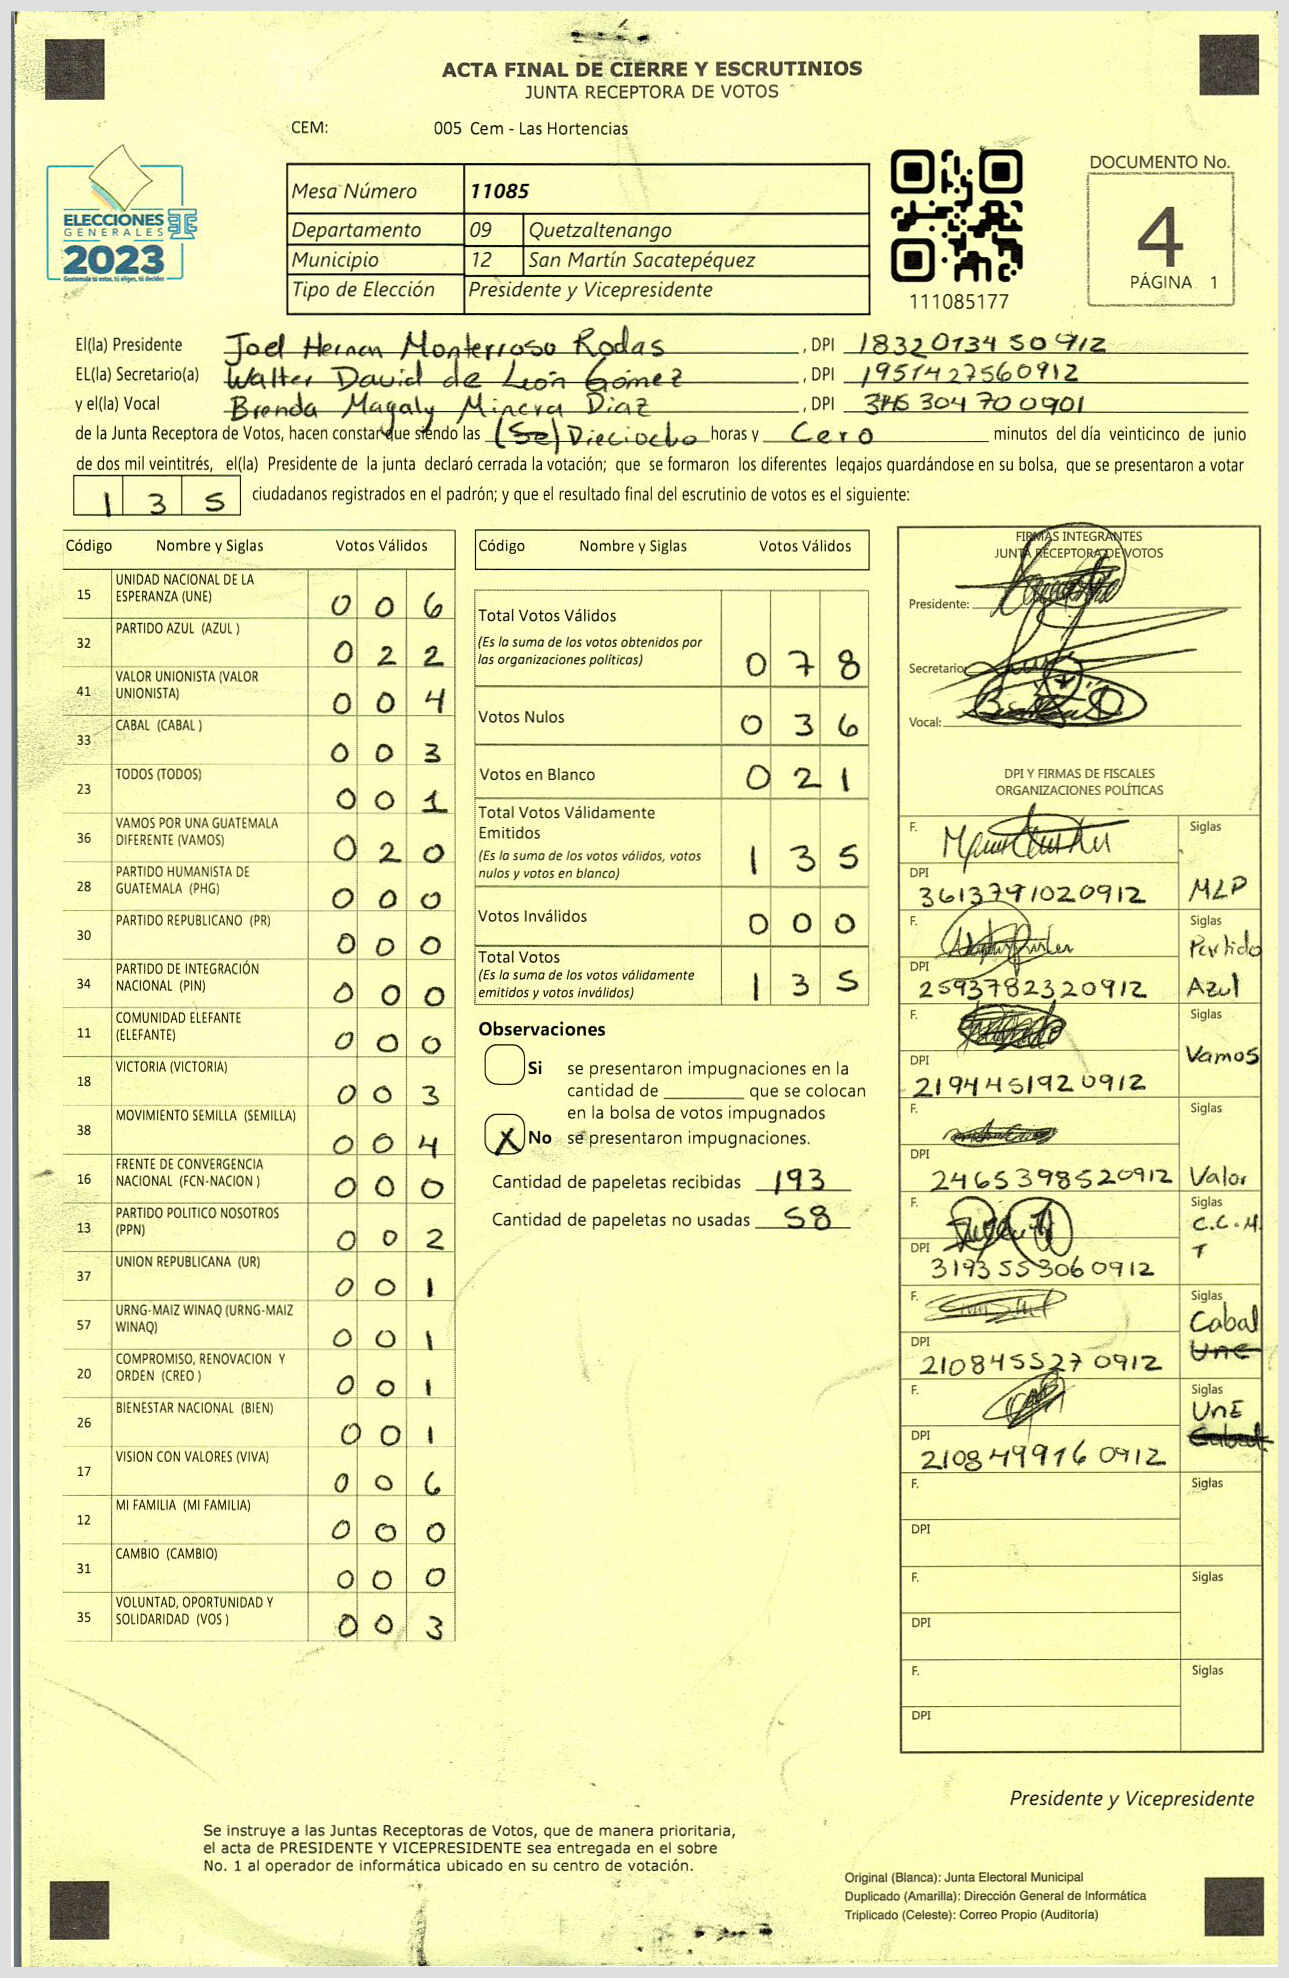 ACTA FINAL DE CIERRE Y ESCRUTINIOS
JUNTA RECEPTORA DE VOTOS
CEM: 005 Cem - Las Hortencias
ELECCIONES
GENERALES
2023
Guatemala tú votas, tú eliges, tú decides
Mesa Número 11085
Departamento 09 Quetzaltenango
Municipio 12 San Martín Sacatepéquez
Tipo de Elección Presidente y Vicepresidente
111085177
DOCUMENTO No.
4
PÁGINA 1
El(la) Presidente Joel Hernan Monterroso Rodas , DPI 1832013450912
EL(la) Secretario(a) Walter David de León Gómez , DPI 1951427560912
y el(la) Vocal Brenda Magaly Minera Diaz , DPI 304700901
de la Junta Receptora de Votos, hacen constar que siendo las (Se) Dieciocho horas y Cero minutos del día veinticinco de junio
de dos mil veintitrés, el(la) Presidente de la junta declaró cerrada la votación; que se formaron los diferentes legajos guardándose en su bolsa, que se presentaron a votar
135 ciudadanos registrados en el padrón; y que el resultado final del escrutinio de votos es el siguiente:
Código Nombre y Siglas Votos Válidos
15 UNIDAD NACIONAL DE LA ESPERANZA (UNE) 006
32 PARTIDO AZUL (AZUL ) 022
41 VALOR UNIONISTA (VALOR UNIONISTA) 004
33 CABAL (CABAL ) 003
23 TODOS (TODOS) 001
36 VAMOS POR UNA GUATEMALA DIFERENTE (VAMOS) 020
28 PARTIDO HUMANISTA DE GUATEMALA (PHG) 000
30 PARTIDO REPUBLICANO (PR) 000
34 PARTIDO DE INTEGRACIÓN NACIONAL (PIN) 000
11 COMUNIDAD ELEFANTE (ELEFANTE) 000
18 VICTORIA (VICTORIA) 003
38 MOVIMIENTO SEMILLA (SEMILLA) 004
16 FRENTE DE CONVERGENCIA NACIONAL (FCN-NACION ) 000
13 PARTIDO POLITICO NOSOTROS (PPN) 002
37 UNION REPUBLICANA (UR) 001
57 URNG-MAIZ WINAQ (URNG-MAIZ WINAQ) 001
20 COMPROMISO, RENOVACION Y ORDEN (CREO ) 001
26 BIENESTAR NACIONAL (BIEN) 001
17 VISION CON VALORES (VIVA) 006
12 MI FAMILIA (MI FAMILIA) 000
31 CAMBIO (CAMBIO) 000
35 VOLUNTAD, OPORTUNIDAD Y SOLIDARIDAD (VOS ) 003
Código Nombre y Siglas Votos Válidos
Total Votos Válidos 078
(Es la suma de los votos obtenidos por
las organizaciones políticas)
Votos Nulos 036
Votos en Blanco 021
Total Votos Válidamente
Emitidos 135
(Es la suma de los votos válidos, votos
nulos y votos en blanco)
Votos Inválidos 000
Total Votos 135
(Es la suma de los votos válidamente
emitidos y votos inválidos)
Observaciones
Si se presentaron impugnaciones en la
cantidad de ________ que se colocan
en la bolsa de votos impugnados
X No se presentaron impugnaciones.
Cantidad de papeletas recibidas 193
Cantidad de papeletas no usadas 58
FIRMAS INTEGRANTES
JUNTA RECEPTORA DE VOTOS
Presidente:
Secretario:
Vocal:
DPI Y FIRMAS DE FISCALES
ORGANIZACIONES POLÍTICAS
F. Siglas
DPI 3613791020912 MLP
F. Siglas Partido
DPI 2593782320912 Azul
F. Siglas
DPI 2194451920912 Vamos
F. Siglas
DPI 2465398520912 Valor
F. Siglas C.C.M.
DPI 3193553060912 T
F. Siglas Cabal
DPI 2108455270912 Une
F. Siglas UnE
DPI 2108499160912 Cabal
F. Siglas
DPI
F. Siglas
DPI
F. Siglas
DPI
Presidente y Vicepresidente
Se instruye a las Juntas Receptoras de Votos, que de manera prioritaria,
el acta de PRESIDENTE Y VICEPRESIDENTE sea entregada en el sobre
No. 1 al operador de informática ubicado en su centro de votación.
Original (Blanca): Junta Electoral Municipal
Duplicado (Amarilla): Dirección General de Informática
Triplicado (Celeste): Correo Propio (Auditoría)